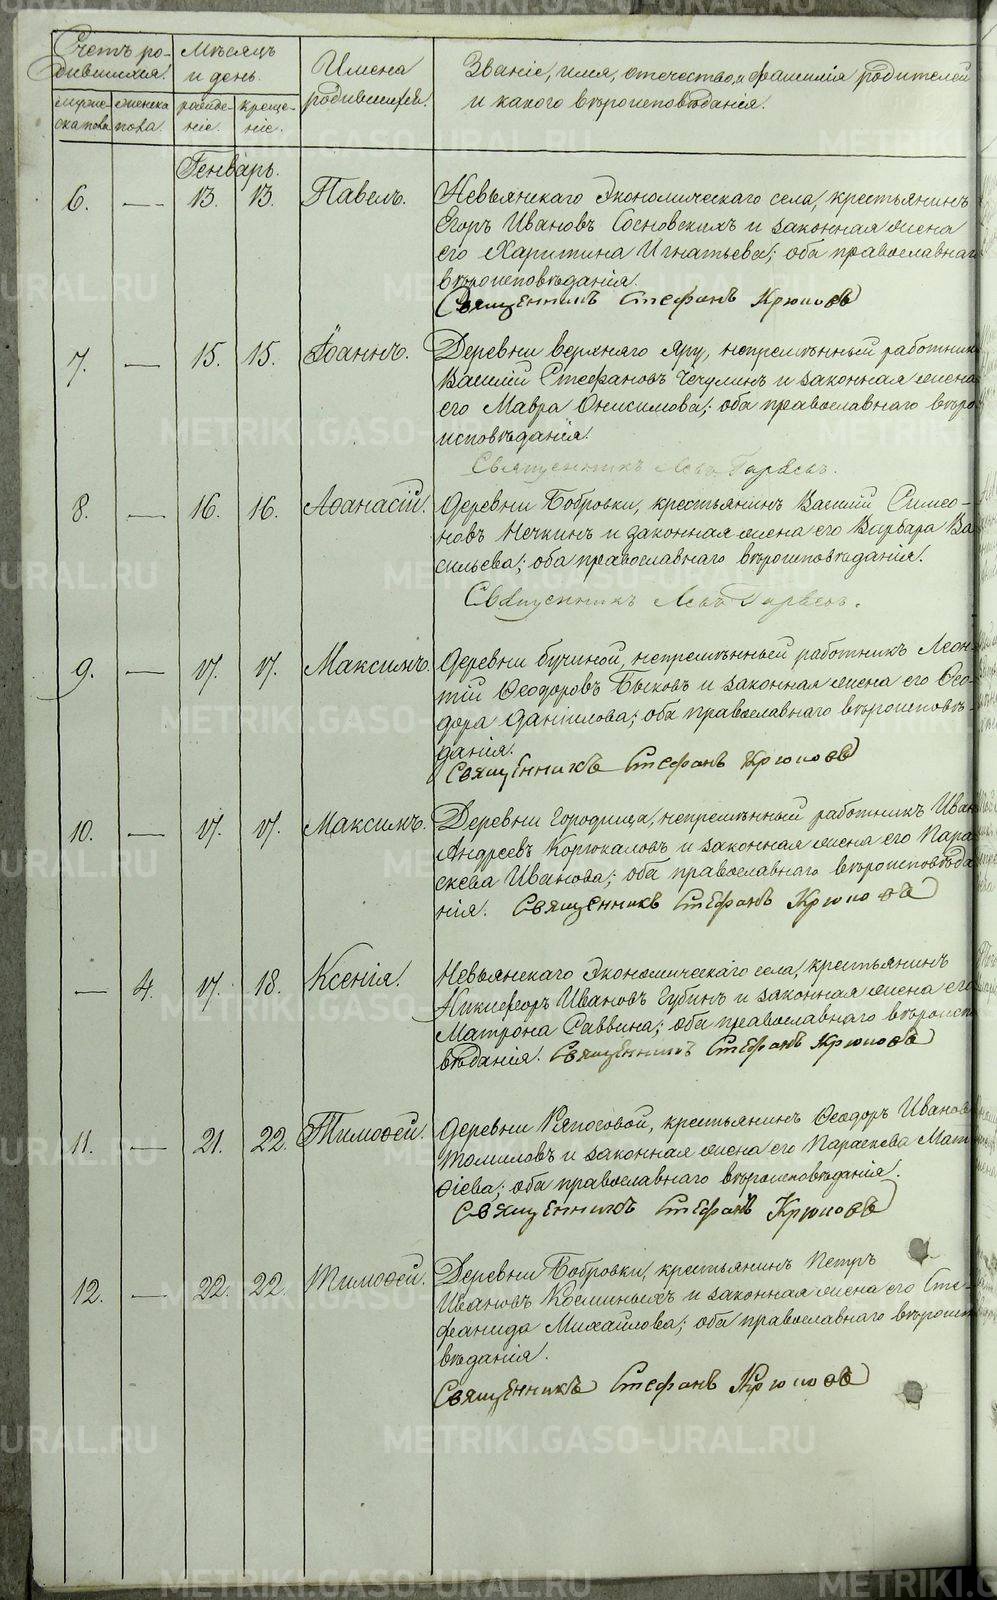 Счетъ ро-
дившихся.
Мѣсяцъ
и день.
Имена
родившихся.
Званіе, имя, отечество, и фамилія родителей
и какого вѣроисповѣданія.
муже-
ска пола.
женска
пола.
рожде-
ніе.
креще-
ніе.
Генварь.
6. — 13. 13. Павелъ. Невьянскаго Экономическаго села, крестьянинъ
Егоръ Ивановъ Сосновскихъ и законная жена
его Харитина Игнатьева; оба православнаго
вѣроисповѣданія.
Священникъ Стефанъ Крюковъ
7. — 15. 15. Іоаннъ. Деревни Верхняго Яру, непремѣнный работникъ
Василій Стефановъ Чечулинъ и законная жена
его Мавра Онисимова; оба православнаго вѣро
исповѣданія.
Священникъ Левъ
8. — 16. 16. Аѳанасій. Деревни Бобровки, крестьянинъ Василій Симео-
новъ Нечкинъ и законная жена его Варвара Ва
сильева; оба православнаго вѣроисповѣданія.
Священникъ Левъ
9. — 17. 17. Максимъ. Деревни Бучиной, непремѣнный работникъ Леон
тій Ѳеодоровъ Быковъ и законная жена его Ѳео-
дора Даніилова; оба православнаго вѣроисповѣ-
данія.
Священникъ Стефанъ Крюковъ
10. — 17. 17. Максимъ. Деревни Городища, непремѣнный работникъ Иван
Андреевъ Корюкаловъ и законная жена его Пара
скева Иванова; оба православнаго вѣроисповѣда
нія. Священникъ Стефанъ Крюковъ
— 4. 17. 18. Ксенія. Невьянскаго Экономическаго села, крестьянинъ
Никифоръ Ивановъ Губинъ и законная жена его
Матрона Саввина; оба православнаго вѣроиспо
вѣданія. Священникъ Стефанъ Крюковъ
11. — 21. 22. Тимоѳей. Деревни крестьянинъ Ѳеодоръ Иванов
Томиловъ и законная жена его Параскева Мат
ѳіева; оба православнаго вѣроисповѣданія.
Священникъ Стефанъ Крюковъ
12. — 22. 22. Тимоѳей. Деревни Бобровки, крестьянинъ Петръ
Ивановъ Косминыхъ и законная жена его Сте-
фанида Михайлова; оба православнаго вѣроиспо
вѣданія.
Священникъ Стефанъ Крюковъ
METRIKI.GASO-URAL.RU